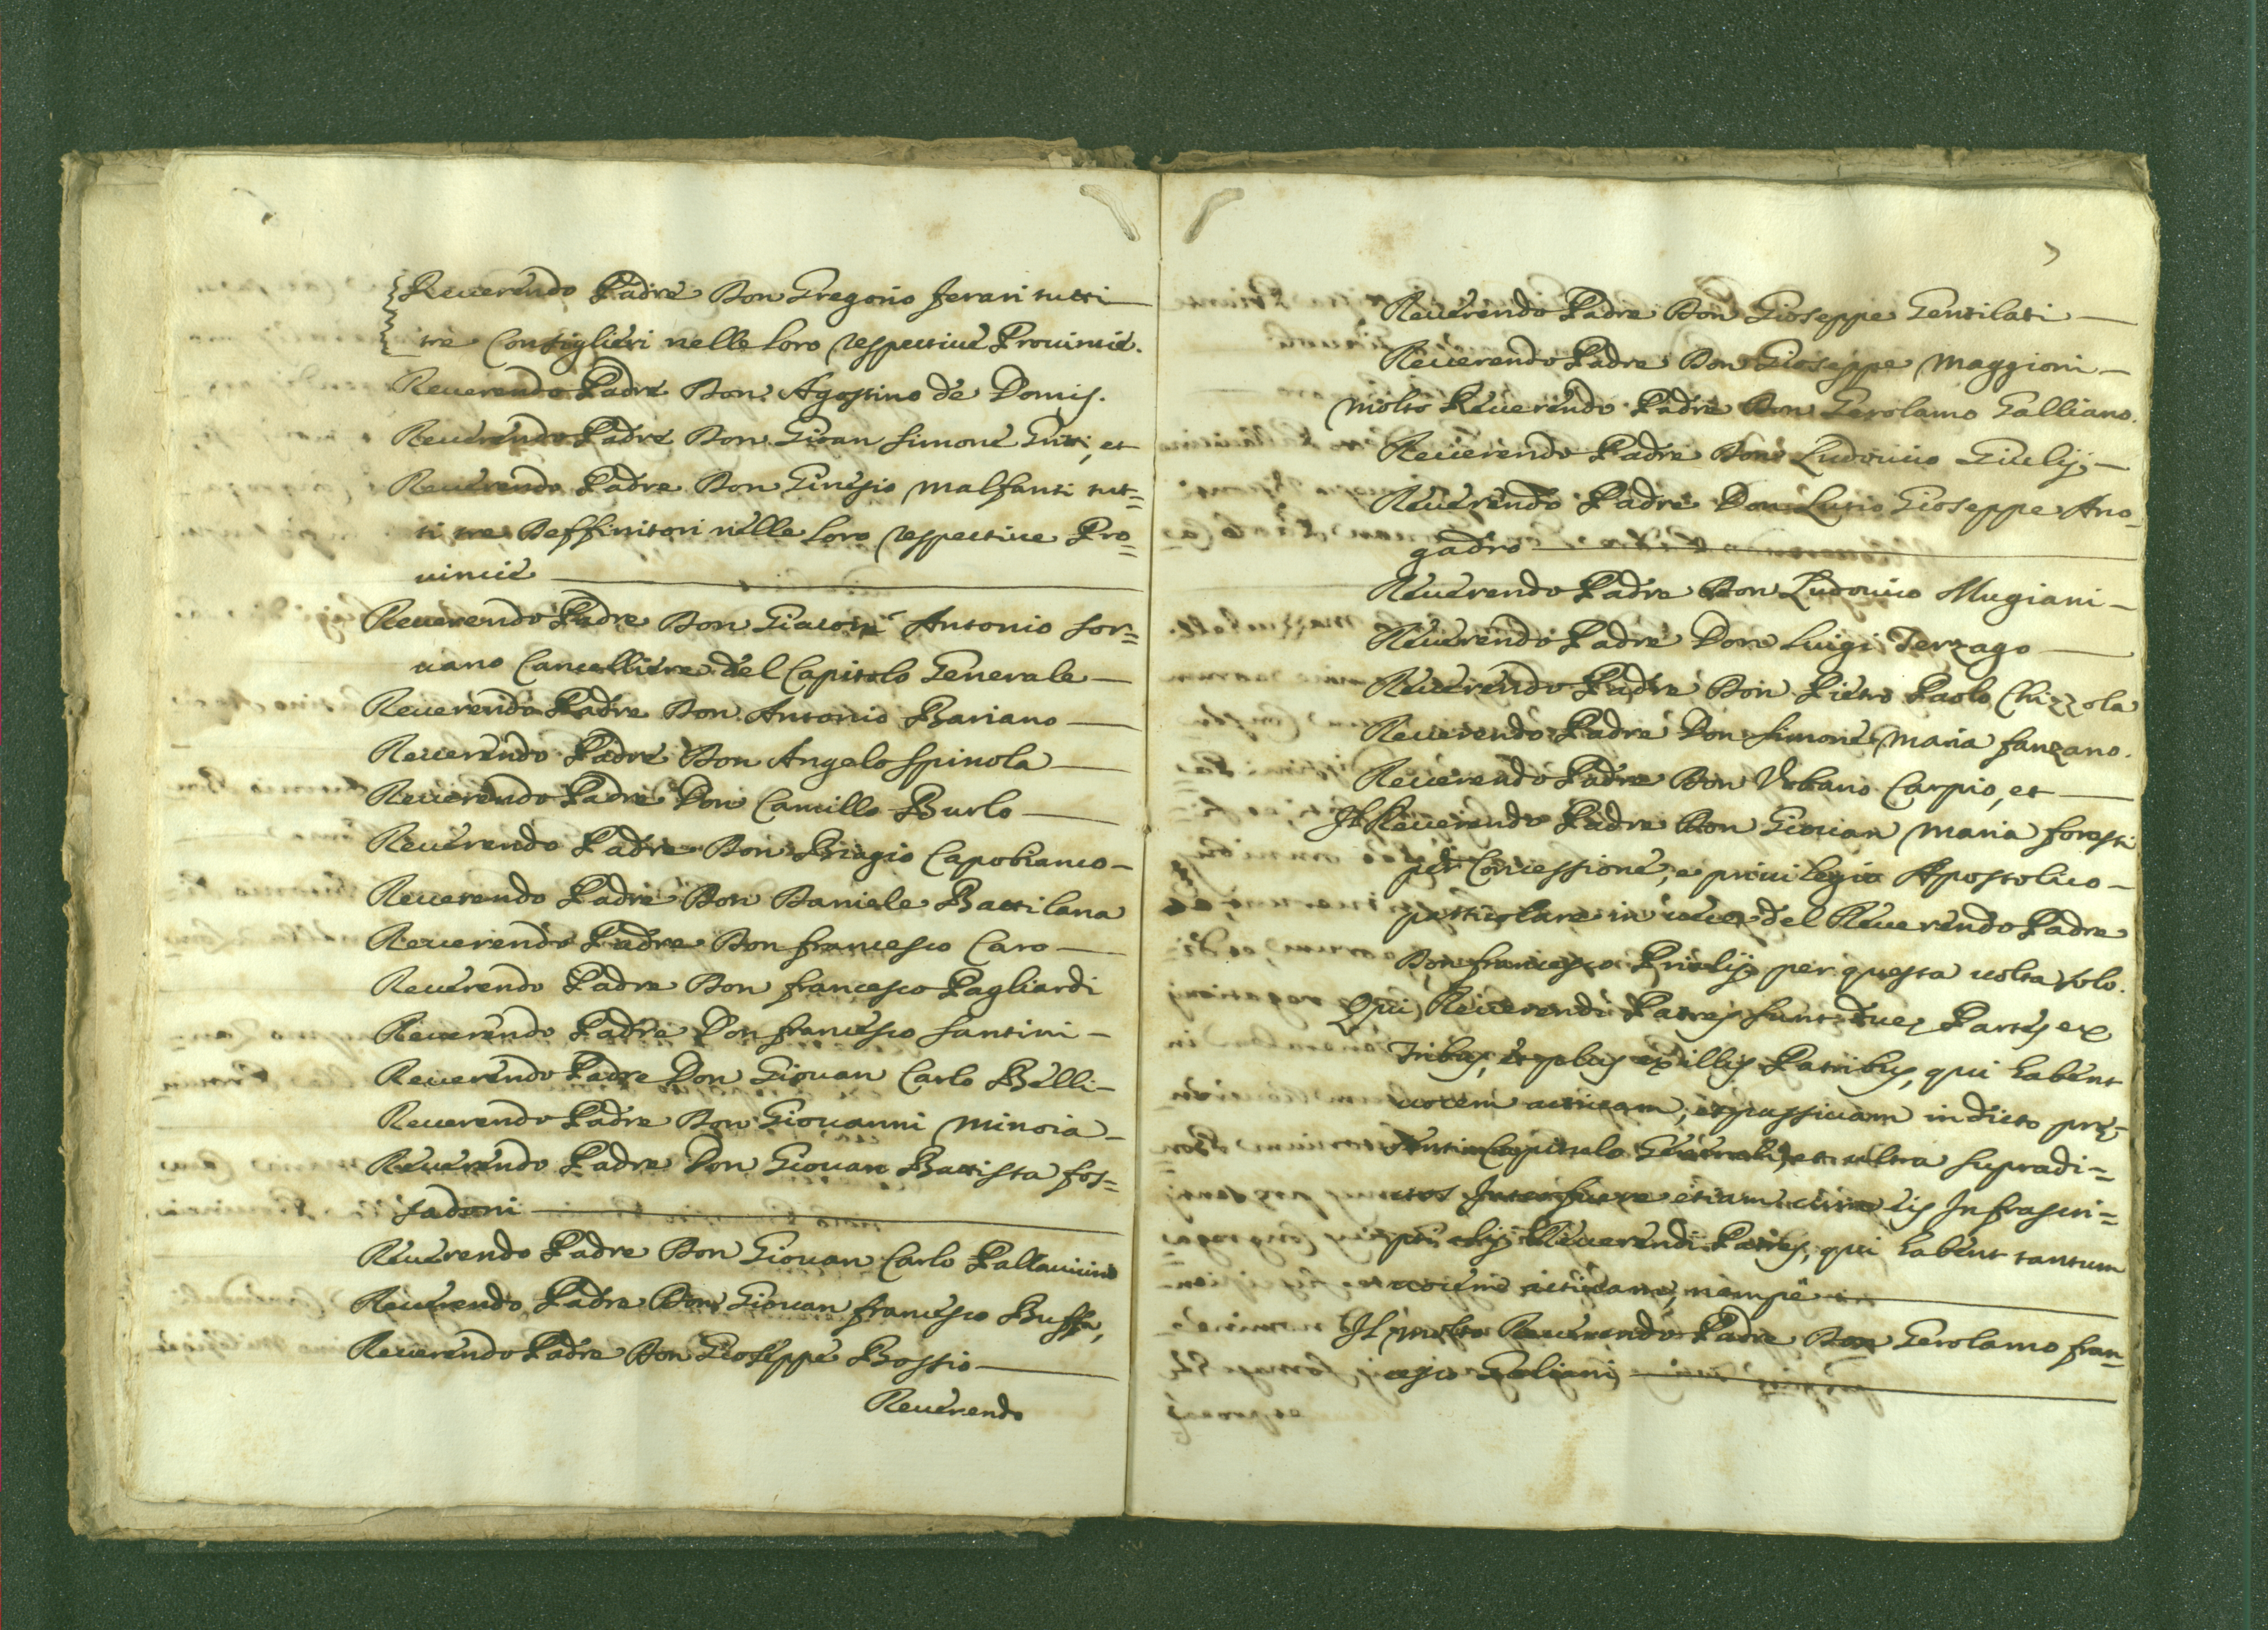 Reuerendo Padre Don Gregorio Ferari tutti
tre Consiglieri nelle loro respettiue Prouincie.
Reuerendo Padre Don Agostino de Domis.
Reuerendo Padre Don Gioan Simone Gritti, et
Reuerendo Padre Don Ginesio Malfanti tut=
ti tre Deffinitori nelle loro respettiue Pro=
uincie
Reuerendo Padre Don Giacom' Antonio Sor=
uano Cancelliere del Capitolo Generale
Reuerendo Padre Don Antonio Bariano
Reuerendo Padre Don Angelo Spinola
Reuerendo Padre Don Camillo Burlo
Reuerendo Padre Don Biagio Capobianco
Reuerendo Padre Don Daniele Battilana
Reuerendo Padre Don Francesco Caro
Reuerendo Padre Don Francesco Pagliardi
Reuerendo Padre Don Francesco Santini
Reuerendo Padre Don Giouan Carlo Belli
Reuerendo Padre Don Giouanni Minoia
Reuerendo Padre Don Giouan Battista Fos=
sadoni
Reuerendo Padre Don Giouan Carlo Pallauicino
Reuerendo Padre Don Giouan Francesco Buffa,
Reuerendo Padre Don Gioseppe Bossio
Reuerendo
7
Reuerendo Padre Don Gioseppe Gentilati
Reuerendo Padre Don Gioseppe Maggioni
Molto Reuerendo Padre Don Gerolamo Galliano.
Reuerendo Padre Don Ludouico Giulij
Reuerendo Padre Don Lutio Gioseppe Auo=
gadro
Reuerendo Padre Don Ludouico Mugiani
Reuerendo Padre Don Luigi Terzago
Reuerendo Padre Don Pietro Paolo Chizzola
Reuerendo Padre Don Simone Maria Fanzano.
Reuerendo Padre Don Vrbano Carpio, et
Il Reuerendo Padre Don Giouan Maria Foresti
per Concessione, e priuilegio Apostolico
particolare in uece del Reuerendo Padre
Don Francesco Priolij per questa uolta solo.
Qui Reuerendi Patres sunt duę Partes ex
Tribus, et plus ex illis Patribus, qui habent
uocem actiuam, et passiuam in dicto prę=
senti Capitulo Generali, et ultra supradi=
ctos Interfuere etiam cum eis Infrascri=
pti alij Reuerendi Patres, qui habent tantum
uocem actiuam, nempè
Il molto Reuerendo Padre Don Gerolamo Fran=
cesco Galiani